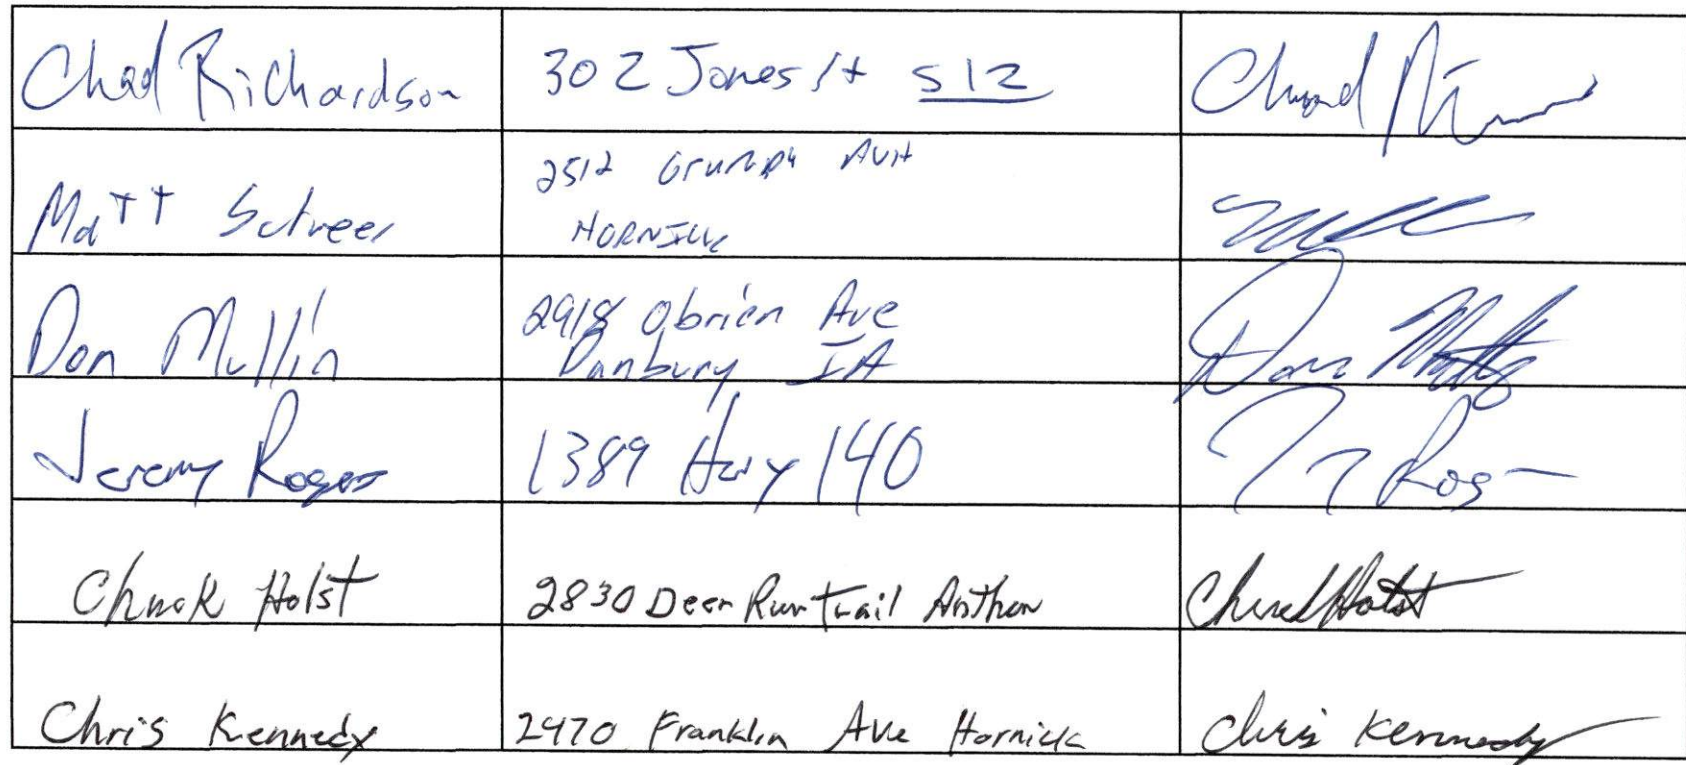 Chad Richardson 302 Jones St S12 Chad
Matt 2512 Ave
Hornick
Don Mullin 2918 Obrien Ave
Danbury IA
Don
Jeremy Roger 1389 Hwy 140 Rog
Chuck Holst 2830 Deer Run Trail Anthon Chuck Holst
Chris Kennedy 2470 Franklin Ave Hornick Chris Kennedy